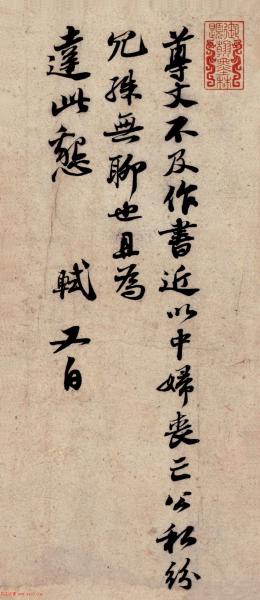 尊丈不及作書近以中婦喪亡公私紛
冗殊無聊也且為
達此懇 軾又白